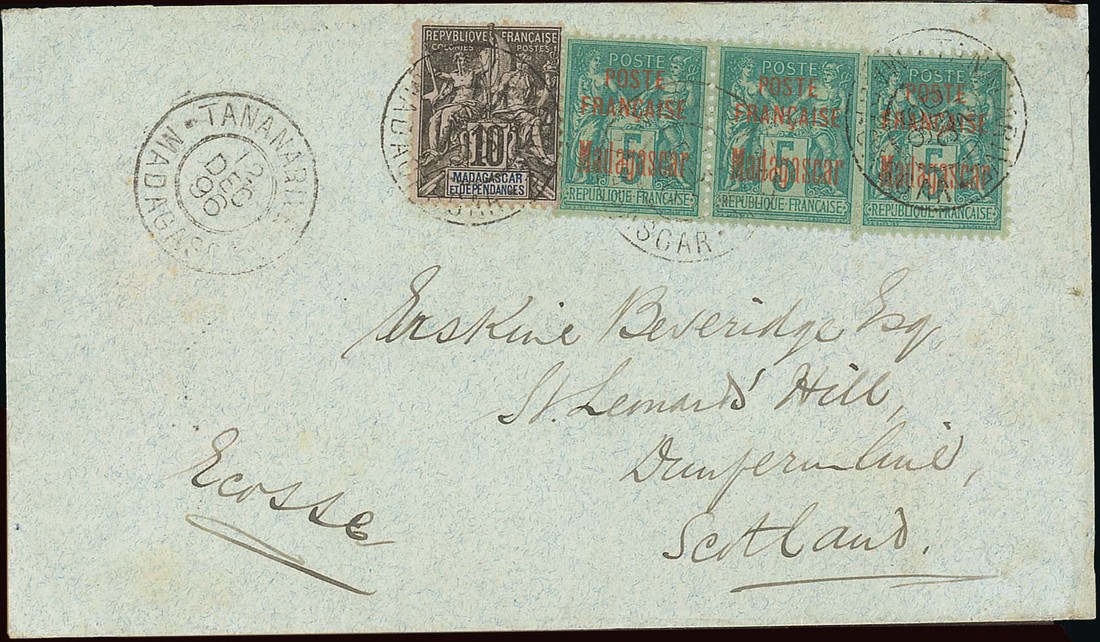 REPVBLIQVE FRANÇAISE
COLONIES POSTES
10
MADAGASCAR
ET DÉPENDANCES
POSTE
POSTE
FRANÇAISE
5
Madagascar
REPUBLIQUE FRANÇAISE
POSTE
POSTE
FRANÇAISE
5
Madagascar
REPUBLIQUE FRANÇAISE
POSTE
POSTE
FRANÇAISE
5
Madagascar
REPUBLIQUE FRANÇAISE
TANANARIVE
12
DEC
96
MADAGASCAR
Erskine Beveridge Esq,
St. Leonards' Hill,
Dunfermline,
Scotland.
Ecosse